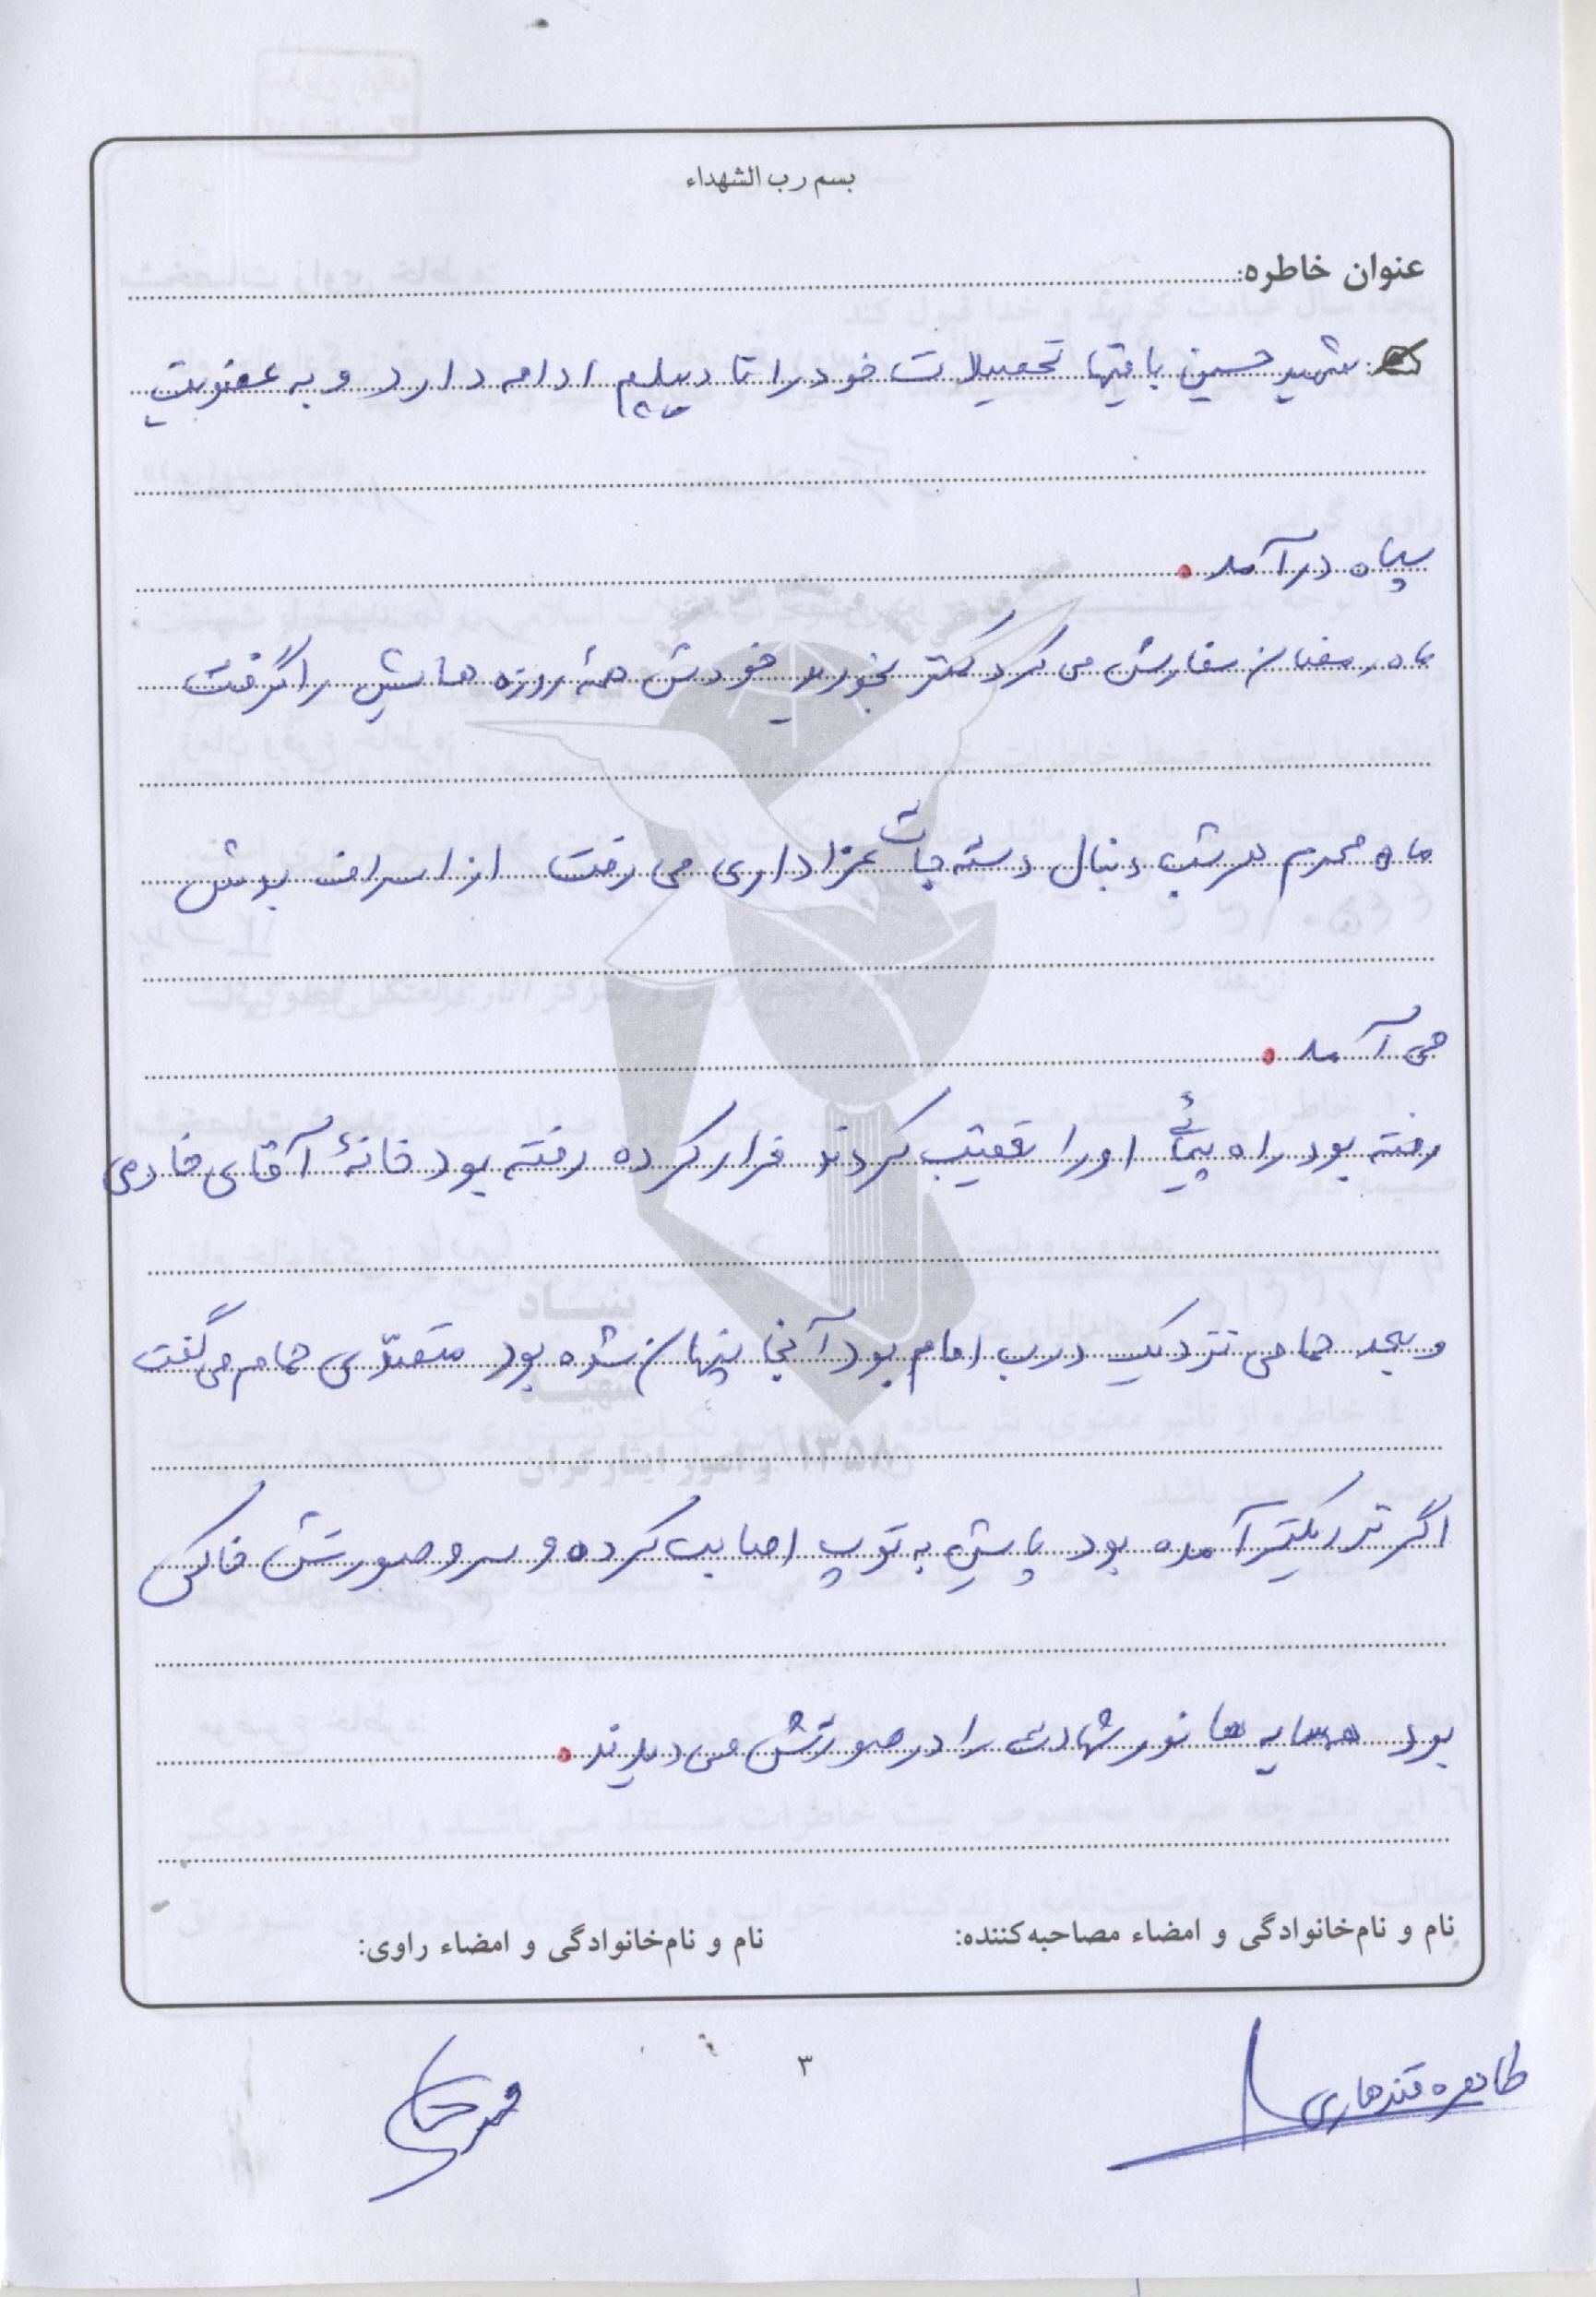 بسم رب الشهداء
عنوان خاطره:
شهید حسین با قیتها تحصیلات خود را تا دیپلم ادامه دارد و به عضویت
سپاه درآمد.
ماه رمضان سفارش می کرد کمتر بخورید خودش همهٔ روزه هایش را گرفت
ماه محرم هر شب دنبال دسته جات عزاداری می رفت از اسراف بدش
می آمد.
رفته بود راه پیمائی او را تعقیب کردند فرار کرده رفته بود خانهٔ آقای خادمی
و بعد حمامی نزدیک درب امام بود آنجا پنهان شده بود متصدّی حمام می گفت
اگر نزدیکتر آمده بود پایش به توپ اصابت کرده و سر و صورتش خاکی
بود همسایه ها نور شهادت را در صورتش می دیدند.
بنیاد
شهید
و امور ایثارگران
نام و نام‌خانوادگی و امضاء مصاحبه‌کننده:
نام و نام‌خانوادگی و امضاء راوی:
طاهره قندهاری
۳